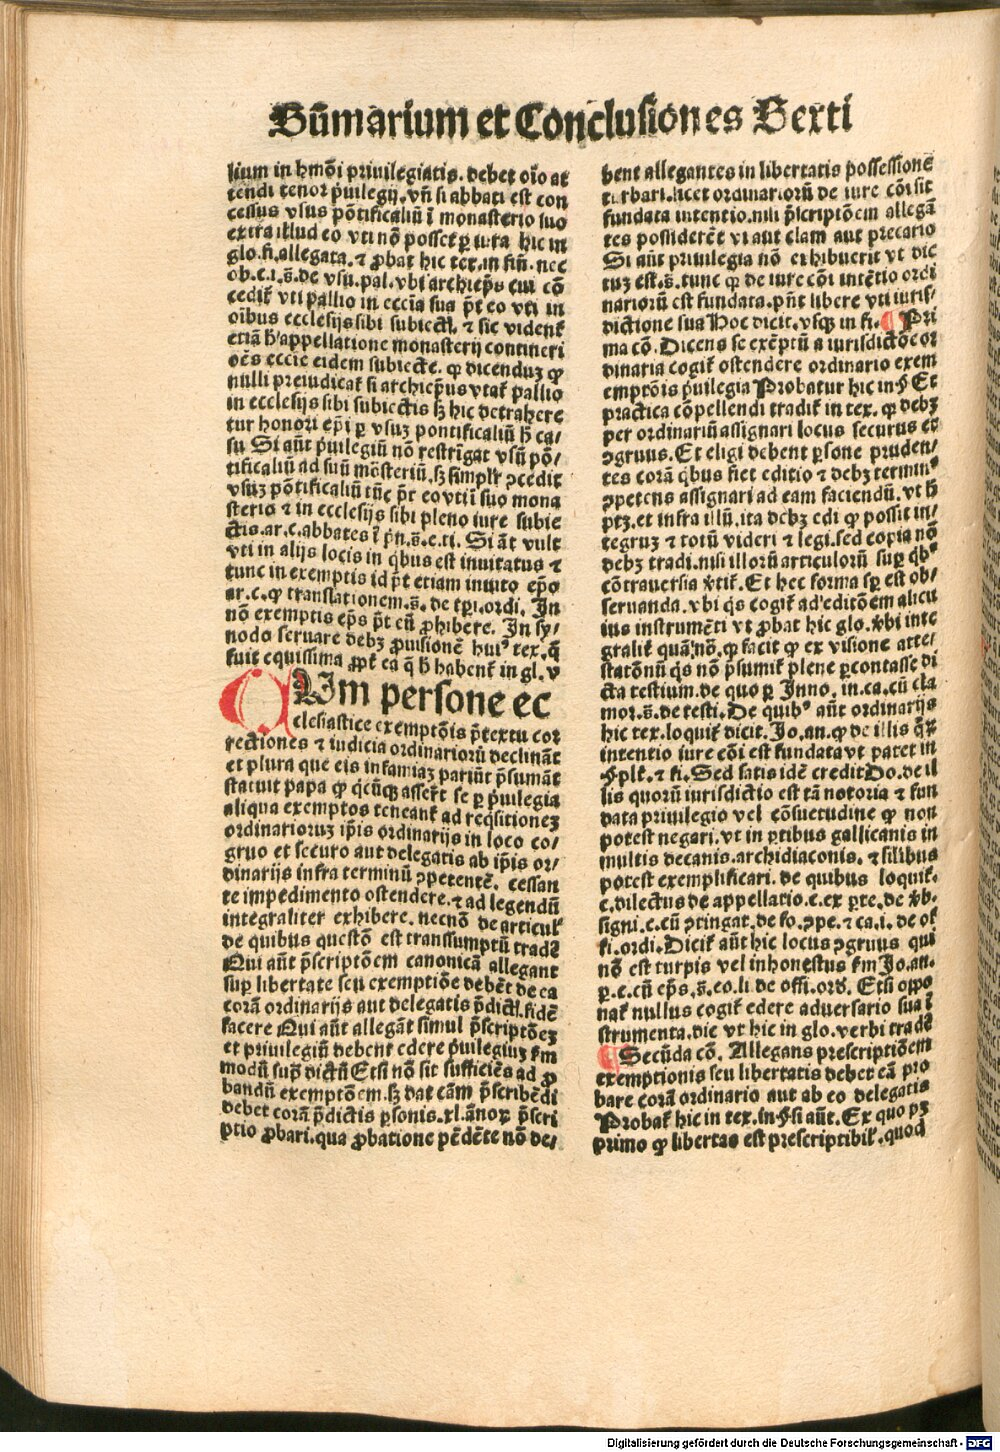 Sūmarium et Conclusiones Sexti
lium in hmōi priuilegiatis. debet oīo at
tendi tenor p̄uilegij. vn̄ si abbati est con
cessus vsus pōtificaliū ī monasterio suo
extra illud eo vti nō posset ꝑ iura hic in
glo. fi. allegata. ⁊ ꝓbat hic tex. in fin̄. nec
ob. c. i. s̄. de vsu. pal. vbi archiep̄s cui cō
cedit̄ vti pallio in eccīa sua p̄t eo vti in
oībus ecclesijs sibi subiect. ⁊ sic vident̄
etiā h' appellatione monasterij contineri
oēs eccīe eidem subiecte. qꝛ dicenduꝫ ꝙ
nulli preiudicat̄ si archiep̄us vtat̄ pallio
in ecclesijs sibi subiectis sꝫ hic detrahere
tur honori ep̄i ꝑ vsuꝫ pontificaliū h̄ ca/
su Si aūt p̄uilegiū nō restrīgat vsū pō/
tificaliū ad suū mōsteriū. sꝫ simplr̄ ꝯcedit
vsuꝫ pōtificaliū tūc p̄t eo vti ī suo mona
sterio ⁊ in ecclesijs sibi pleno iure subie
ctis. ar. c. abbates ī p̄n. s̄. e. ti. Si āt vult
vti in alijs locis in qbus est inuitatus ⁊
tunc in exemptis id p̄t etiam inuito ep̄o
ar. c. ꝙ translationem. s̄. de tꝑi. ordi. In
nō exemptis ep̄s p̄t eū ꝓhibere. In sy/
nodo seruare debꝫ ꝓuisionē huiꝰ tex. q̄
fuit equissima ꝓpt̄ ea q̄ h̄ habent̄ in gl. v
CUm persone ec
clesiastice exemptōis p̄textu cor
rectiones ⁊ iudicia ordinariorū declināt
et plura que eis infamiaꝫ pariūt p̄sumāt
statuit papa ꝙ qcūqꝫ asser̄t se ꝑ p̄uilegia
aliqua exemptos teneant̄ ad reqsitioneꝫ
ordinarioruꝫ ip̄is ordinarijs in loco co/
gruo et securo aut delegatis ab ip̄is or/
dinarijs infra terminū ꝯpetentē. cessan
te impedimento ostendere. ⁊ ad legendū
integraliter exhibere. necnō de articul'
de quibus questō est transsumptū tradē
Qui aūt p̄scriptōem canonicā allegant
suꝑ libertate seu exemptiōe debēt de ea
corā ordinarijs aut delegatis p̄dict. fidē
facere Qui aūt allegāt simul p̄scriptōeꝫ
et priuilegiū debent edere p̄uilegiuꝫ fm
modū sup̄ dictū Etsi nō sit sufficiēs ad ꝓ
bandū exemptōem. sꝫ dat cām p̄scribēdi
debet corā p̄dictis ꝑsonis. xl. ānoꝝ p̄scri
ptio ꝓbari. qua ꝓbatione pēdēte nō de/
bent allegantes in libertatis possessione
turbari. licet ordinariorū de iure cōi sit
fundata intentio. nisi p̄scriptōem allegā
tes possiderēt vi aut clam aut precario
Si aūt priuilegia nō exhibuerit vt dic
tuꝫ est. s̄. tunc qꝛ de iure cōi intētio ordi
nariorū est fundata. pn̄t libere vti iuris/
dictione sua Hoc dicit. vsqꝫ in fi. ¶ Pri
ma cō. Dicens se exēptū a iurisdictōe or
dinaria cogit̄ ostendere ordinario exem
emptōis p̄uilegia Probatur hic in § Et
practica cōpellendi tradit̄ in tex. qꝛ debꝫ
per ordinariū assignari locus securus et
ꝯgruus. Et eligi debent ꝑsone pruden/
tes corā qbus fiet editio ⁊ debꝫ terminꝰ
ꝯpetens assignari ad eam faciendū. vt h̄
ptꝫ. et infra illū. ita debꝫ edi ꝙ possit in/
tegruꝫ ⁊ totū videri ⁊ legi. sed copia nō
debꝫ tradi. nisi illorū articulorū suꝑ qbꝰ
cōtrauersia vertit̄. Et hec forma sꝑ est ob/
seruanda. vbi qs cogit̄ ad editōem alicu
ius instrumēti vt ꝓbat hic glo. verbi inte
gralit̄ quā nō. qꝛ facit ꝙ ex visione atte/
statōnū qs nō p̄sumit̄ plene percontasse di
cta testium. de quo ꝑ Inno. in. ca. cū cla
mor. s̄. de testi. De quibꝰ aūt ordinarijs
hic tex. loquit̄ dicit. Jo. an. ꝙ de illis qꝝ
intentio iure cōi est fundata vt patet in
§ plt. ⁊ fi. Sed satis idē credit Do. de il
lis quorū iurisdictio est tā notoria ⁊ fun
data priuilegio vel cōsuetudine ꝙ non
potest negari. vt in ꝑtibus gallicanis in
multis decanis. archidiaconis. ⁊ silibus
potest exemplificari. de quibus loquit̄.
c. dilectus de appellatio. c. ex ꝑte. de verb.
signi. c. cū ꝯtingat. de fo. ꝯpe. ⁊ ca. i. de of
fi. ordi. Dicit̄ aūt hic locus ꝯgruus qui
nō est turpis vel inhonestus fm Jo. an.
ꝑ. c. cū ep̄s. s̄. eo. li. de offi. ord. Etsi oppo
nat̄ nullus cogit̄ edere aduersario sua ī
strumenta. dic vt hic in glo. verbi tradē
¶ Secūda cō. Allegans prescriptiōem
exemptionis seu libertatis debet eā pro
bare corā ordinario aut ab eo delegatis
Probat̄ hic in tex. in § si aūt. Ex quo pꝫ
primo ꝙ libertas est prescriptibil'. quod
Digitalisierung gefördert durch die Deutsche Forschungsgemeinschaft - DFG